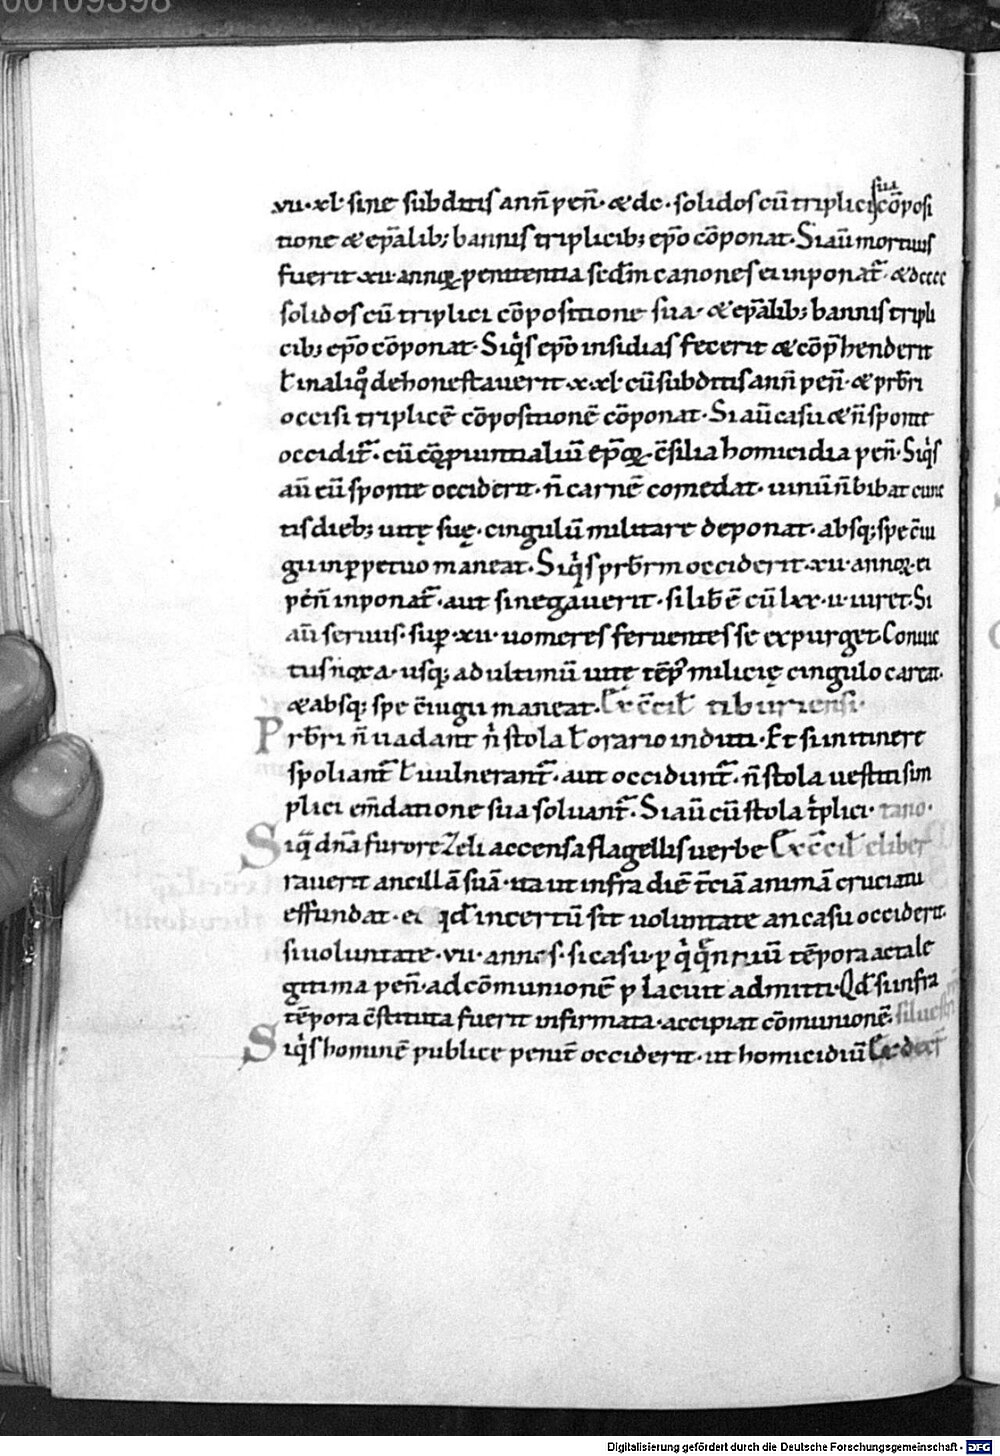 00109398
sua
vii·xl· sine subditis ann̄ pen̄· & dc· solidos cū triplici cōposi
tione & ep̄alib; bannis triplicib; ep̄o cōponat· Si aū mortuus
fuerit xii· annoꝝ penitentia scd̄m canones ei inponat̄· & dcccc
solidos cū triplici cōpositione sua· & ep̄alib; bannis tripli
cib; ep̄o cōponat· Siq̇s ep̄o insidias fecerit & cōp̄henderit
ł in aliq̊ dehonestauerit x·xl· cū subditis ann̄ pen̄· & prb̄ri
occisi triplicē cōpositionē cōponat· Si aū casu & n̄ sponte
occidit̄· cū cōp̄uintialiū ep̄oꝝ c̄silia homicidia pen̄· Siq̇s
aū eū sponte occiderit· n̄ carnē comedat· uinū n̄ bibat cunc
tis dieb; uitę suę· cingulū militare deponat· absq; spe c̄iu
gii in ꝑpetuo maneat· Siq̇s prb̄rm occiderit· xii· annoꝝ ei
pen̄ inponat̄· aut si negauerit· si lib̄ ē cū lxx·ii· iuret· Si
aū seruus· suꝑ xii· uomeres feruentes se expurget· Conuic
tus noxa· usq; ad ultimū uitę tēp̄ milicię cingulo careat·
& absq; spe c̄iugii maneat· Ex c̄cil̄ tiburiensi·
Prb̄ri n̄ uadant n̄ stola ł orario induti· Et si in itinere
spoliant̄ ł uulnerant̄· aut occidunt̄· n̄ stola uestiti sim
plici em̄datione sua soluant̄· Si aū cū stola t̄plici· tano·
Siq̄ dn̄a furore zeli accensa flagellis uerbe Ex c̄cil̄ eliber
rauerit ancillā suā· ita ut infra diē t̄ciā animā cruciatu
effundat· et qd̄ incertū sit uoluntate an casu occiderit·
si uoluntate· vii· annos· si casu· ꝑ q̇nq̄nniū tēpora acta le
gitima pen̄· ad cōmunionē placuit admitti· Qd̄ si infra
tēpora c̄stituta fuerit infirmata· accipiat cōmunionē· siluestri
Siq̇s hominē publice penit̄ occiderit· ut homicidiū Ex decr̄
Digitalisierung gefördert durch die Deutsche Forschungsgemeinschaft - DFG